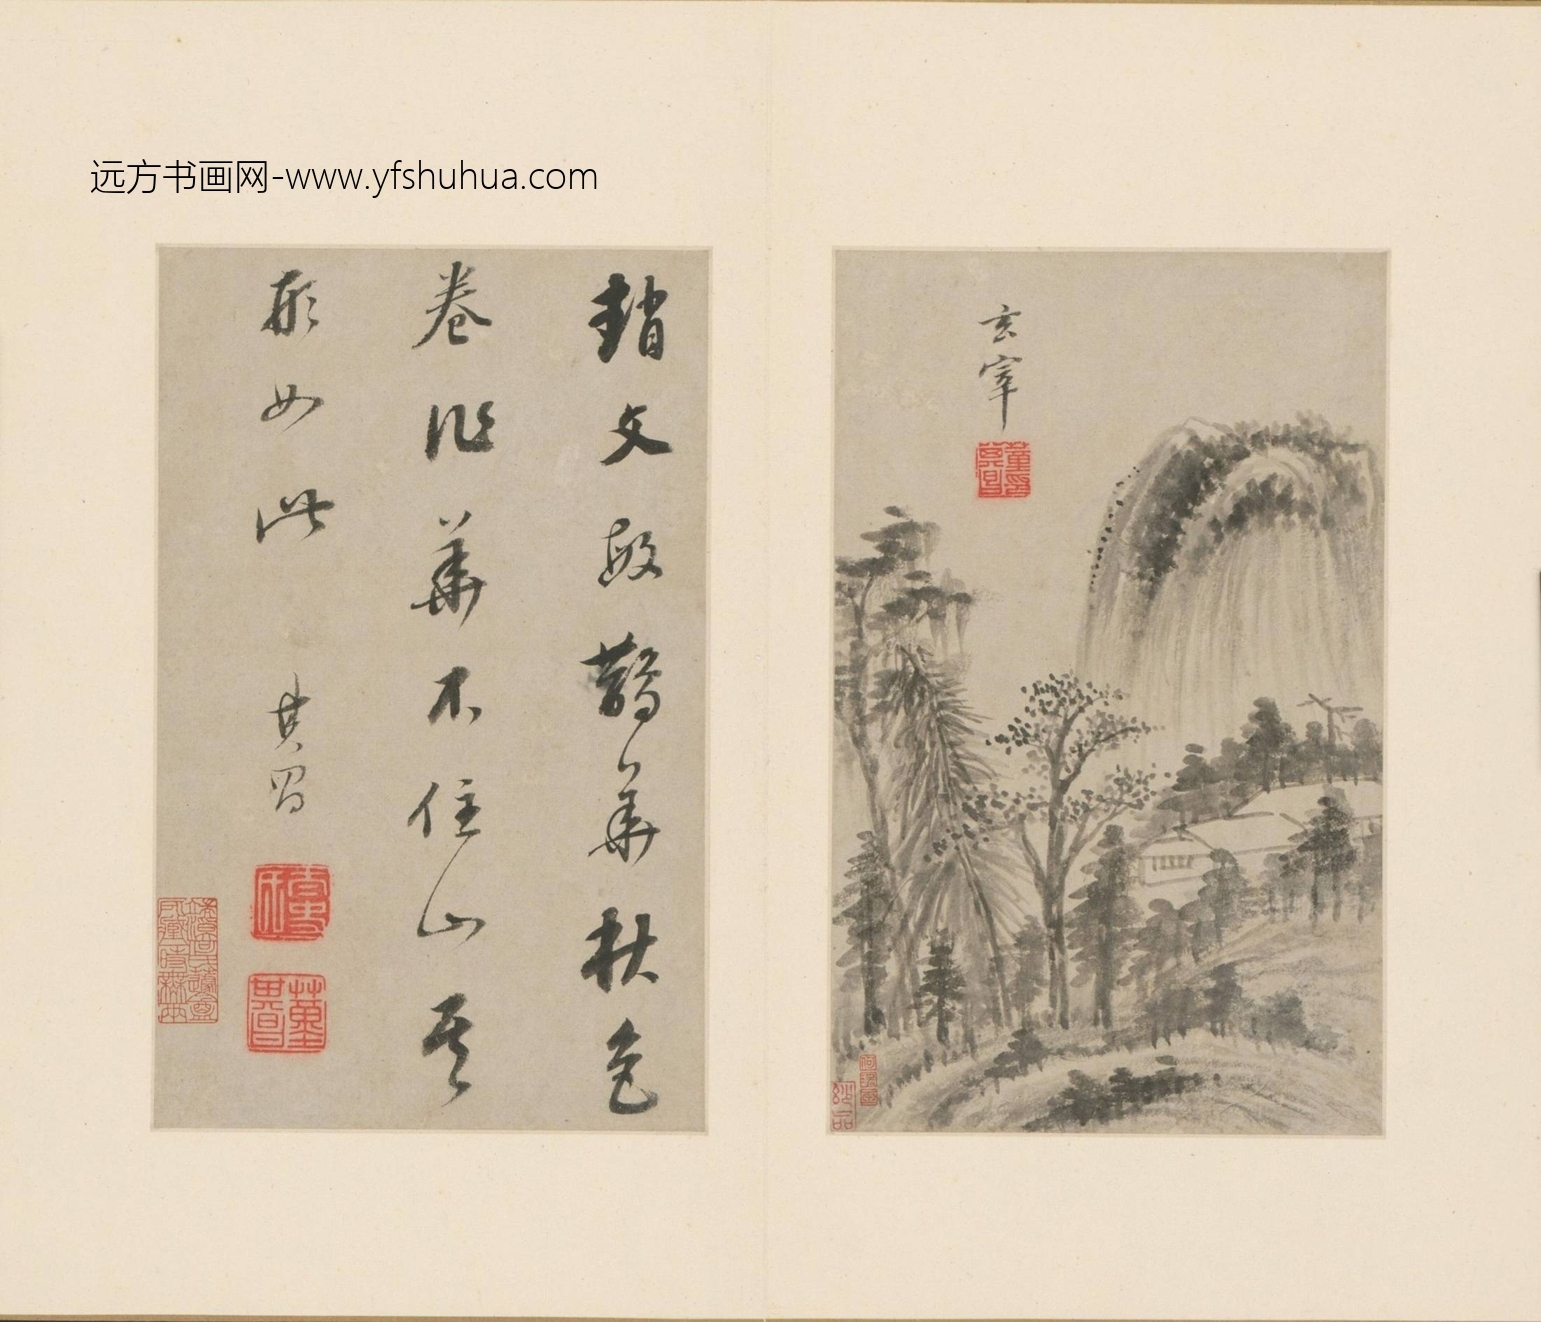 远方书画网-www.yfshuhua.com
玄宰
趙文敏鵲華秋色
卷作華不住山其
形如此 其昌